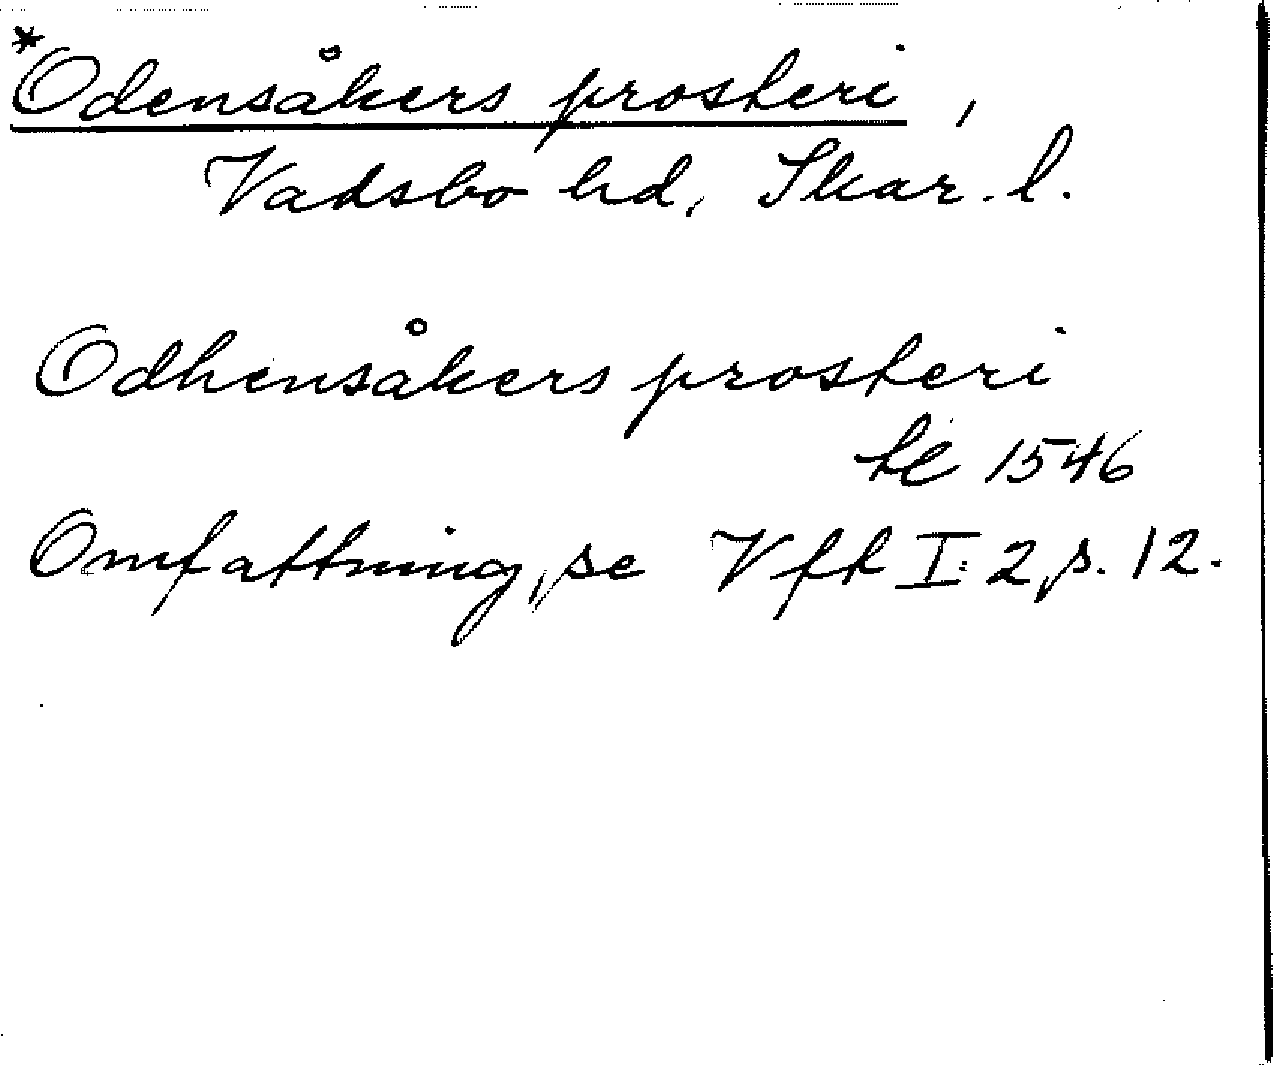 *Odensåkers prosteri,
Vadsbo hd, Skar. l.
Odhensåkers prosteri
tl 1546
Omfattning, se Vft I:2, s. 12.